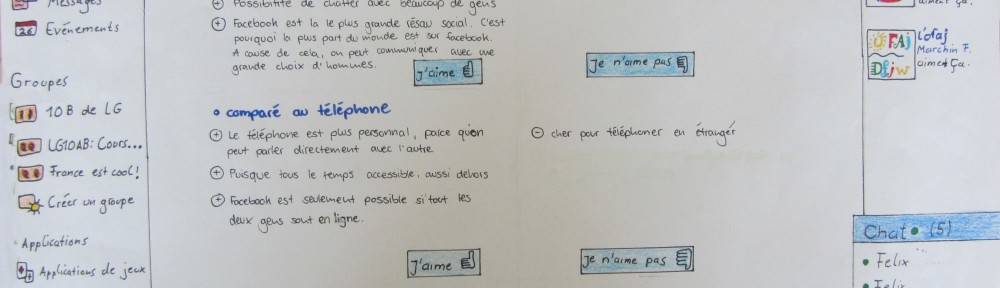 Messages
Événements
Groupes
10 B de LG
LG10AB: Cours...
France est cool!
Créer un groupe
Applications
Applications de jeux
⊕ Possibilité de chatter avec beaucoup de gens
⊕ Facebook est la le plus grande résau social. C'est
pourquoi la plus part du monde est sur facebook.
A cause de cela, on peut communiquer avec une
grande choix d'hommes.
J'aime
Je n'aime pas
• comparé au téléphone
⊕ Le téléphone est plus personnal, parce qu'on
peut parler directement avec l'autre
⊕ Puisque tous le temps accessible, aussi dehors
⊕ Facebook est seulement possible si tout les
deux gens sont en ligne.
⊖ cher pour téléphoner en étranger
J'aime
Je n'aime pas
aiment ça.
OFAJ
DFJW
L'ofaj
Marchin F.
aiment ça.
Chat • (5)
• Felix
• Felix